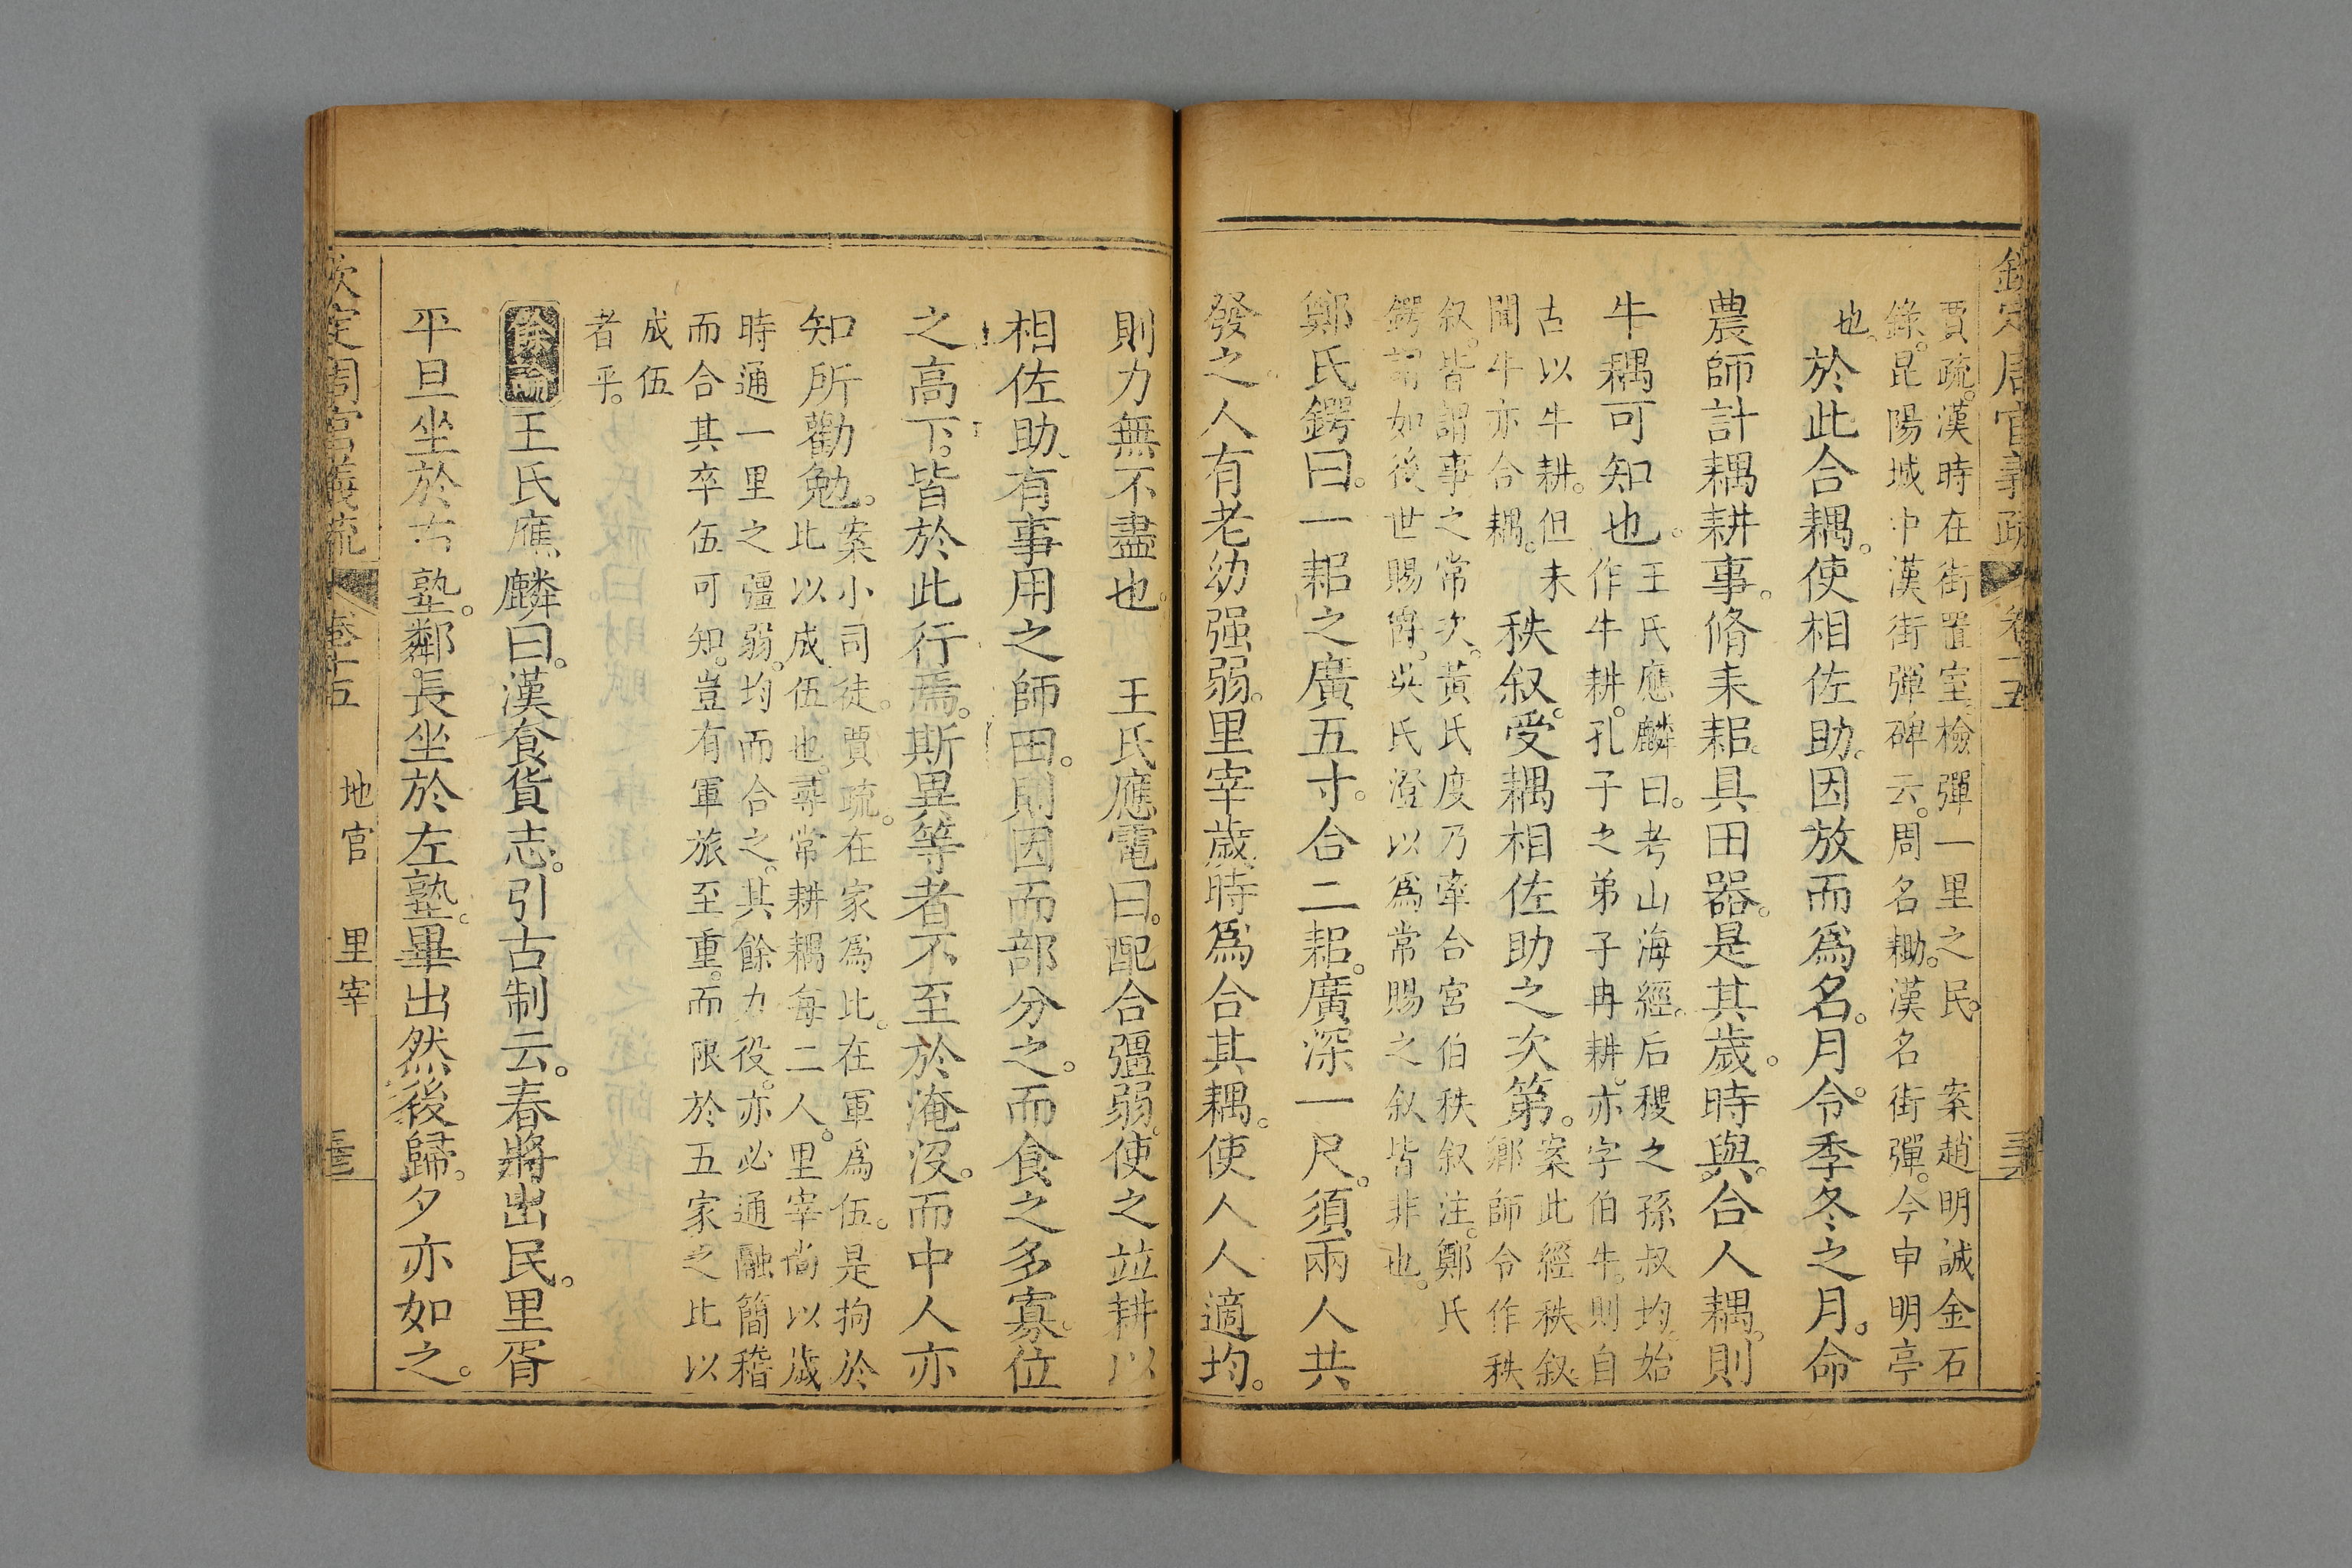 欽定周官義疏 卷十五
賈疏。漢時在街置室。檢彈一里之民。 案趙明誠金石
錄。昆陽城中漢街彈碑云。周名耡。漢名街彈。今申明亭
也。
於此合耦。使相佐助。因放而爲名。月令。季冬之月。命
農師計耦耕事。脩耒耜。具田器。是其歲時與。合人耦。則
牛耦可知也。
王氏應麟曰。考山海經。后稷之孫叔均。始
作牛耕。孔子之弟子冉耕。亦字伯牛。則自
古以牛耕。但未
聞牛亦合耦。
秩叙。受耦相佐助之次第。
案此經秩叙。
鄉師令作秩
叙。皆謂事之常次。黃氏度乃牽合宮伯秩叙注。鄭氏
鍔謂如後世賜爵。吳氏澄以爲常賜之叙皆非也。
鄭氏鍔曰。一耜之廣五寸。合二耜。廣深一尺。須兩人共
發之。人有老幼强弱。里宰歲時爲合其耦。使人人適均。
則力無不盡也。 王氏應電曰。配合彊弱。使之竝耕以
相佐助。有事用之師田。則因而部分之。而食之多寡。位
之高下。皆於此行焉。斯異等者不至於淹沒。而中人亦
知所勸勉。
案小司徒。賈疏。在家爲比。在軍爲伍。是拘於
比以成伍也。尋常耕耦每二人。里宰尚以歲
時通一里之彊弱。均而合之。其餘力役。亦必通融簡稽
而合其卒伍可知。豈有軍旅至重。而限於五家之比以
成伍
者乎。
餘論 王氏應麟曰。漢食貨志。引古制云。春將出民。里胥
平旦坐於右塾。鄰長坐於左塾。畢出然後歸。夕亦如之。
欽定周官義疏 卷十五 地官 里宰